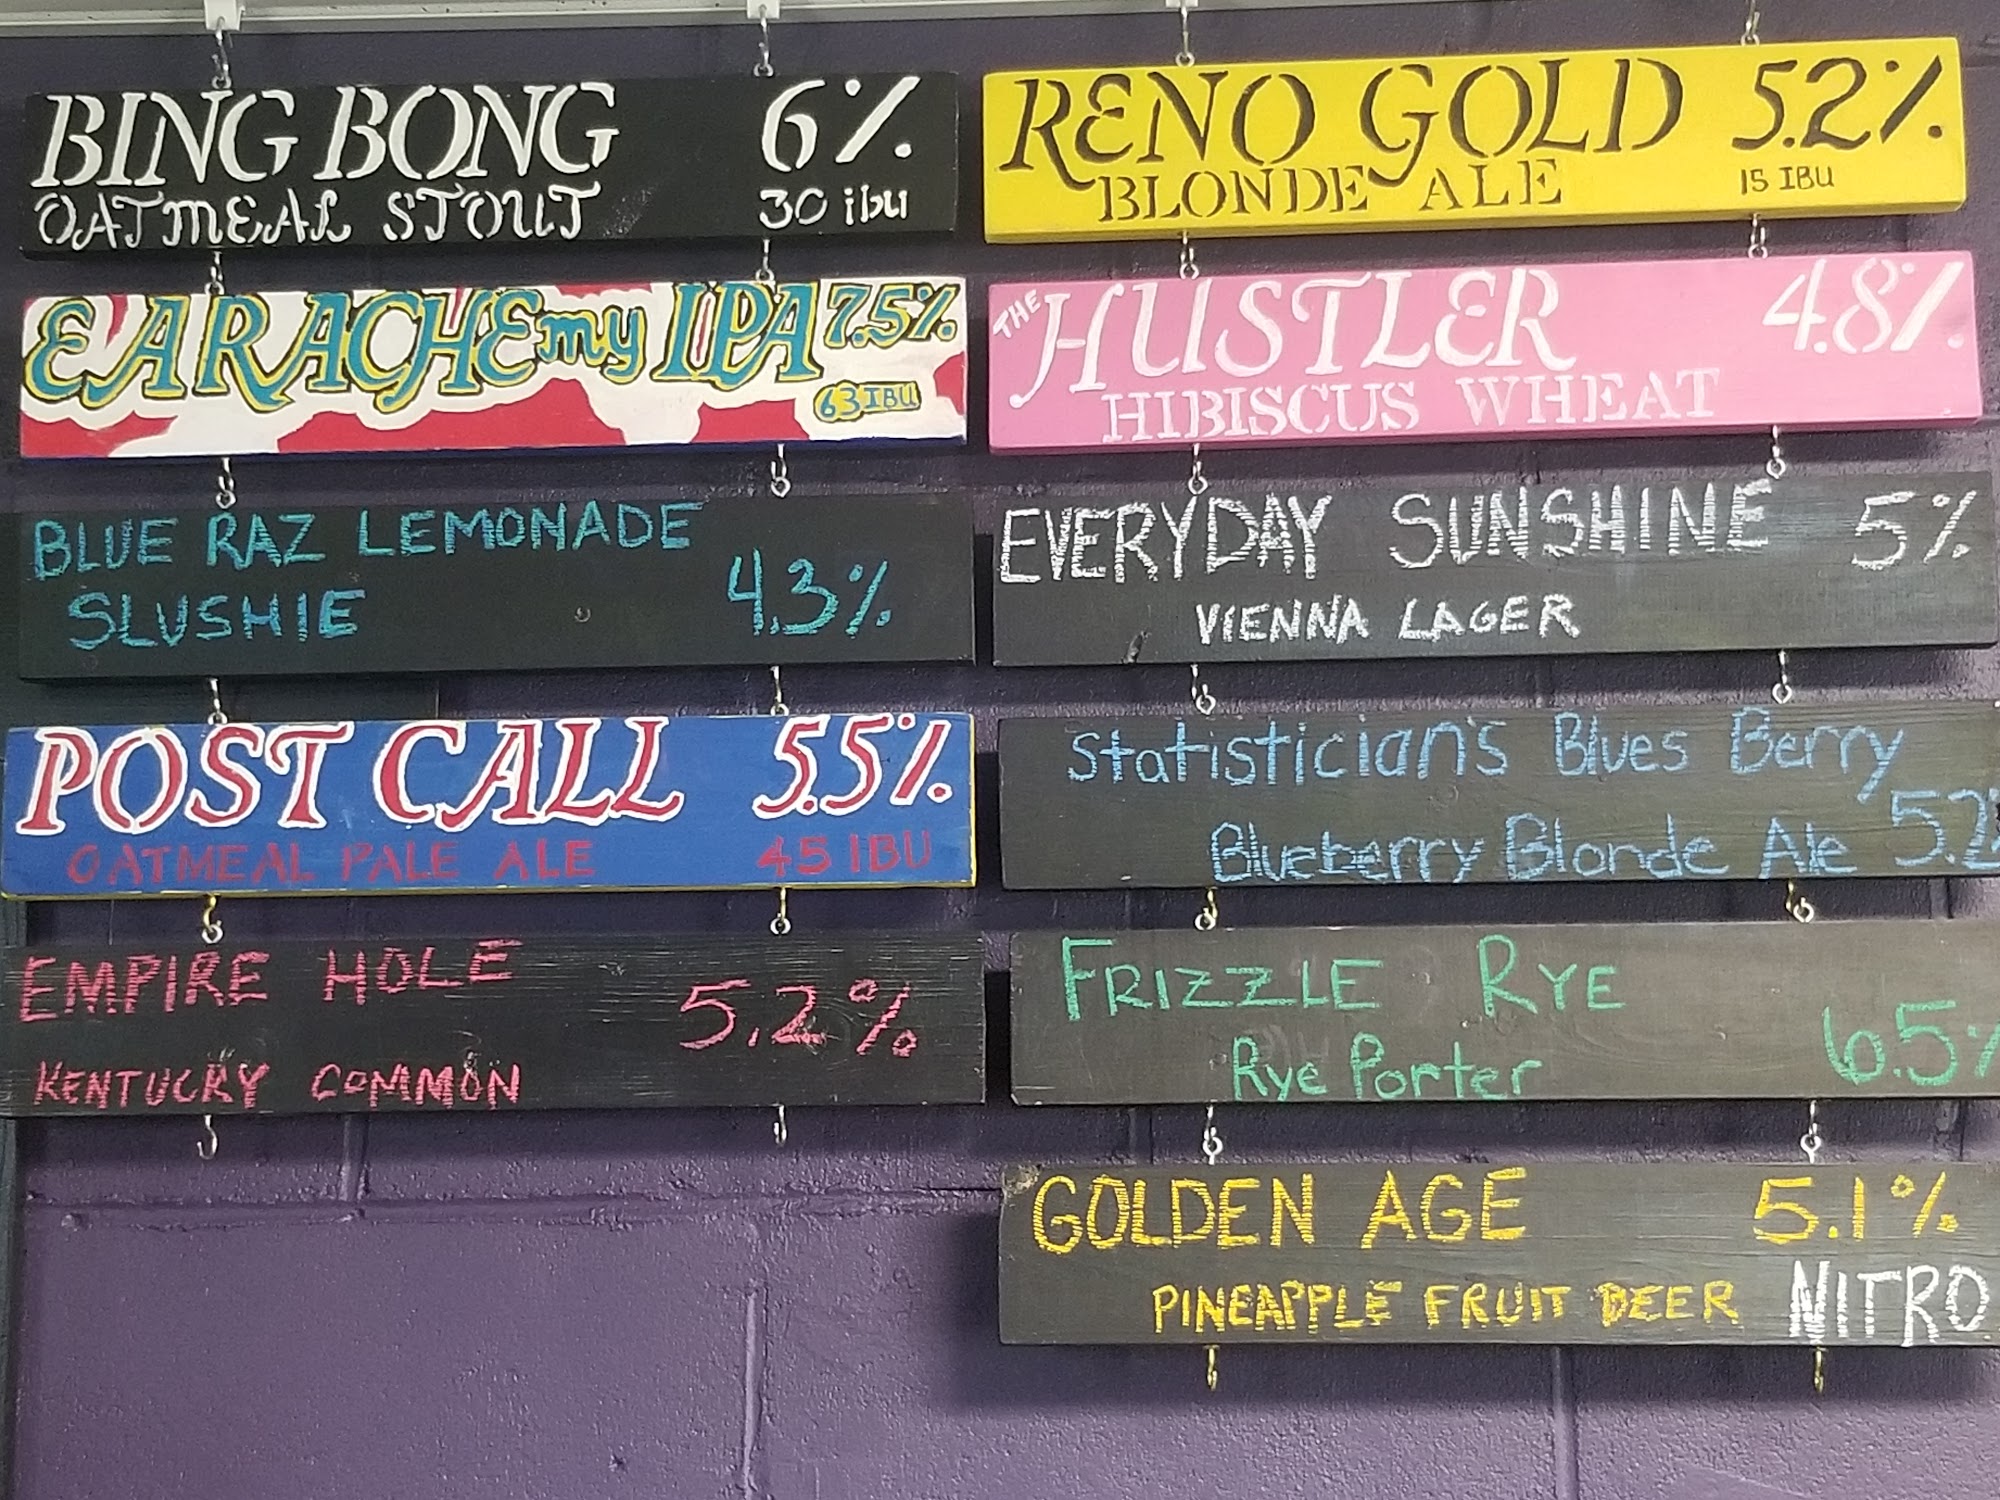 BING BONG 6%
OATMEAL STOUT 30 ibu
EARACHE my IPA 7.5%
63 IBU
BLUE RAZ LEMONADE
SLUSHIE 4.3%
POST CALL 5.5%
OATMEAL PALE ALE 45 IBU
EMPIRE HOLE 5.2%
KENTUCKY COMMON
RENO GOLD 5.2%
BLONDE ALE 15 IBU
THE HUSTLER 4.8%
HIBISCUS WHEAT
EVERYDAY SUNSHINE 5%
VIENNA LAGER
Statistician's Blues Berry
Blueberry Blonde Ale 5.2
FRIZZLE RYE
Rye Porter 6.5%
GOLDEN AGE 5.1%
PINEAPPLE FRUIT BEER NITRO